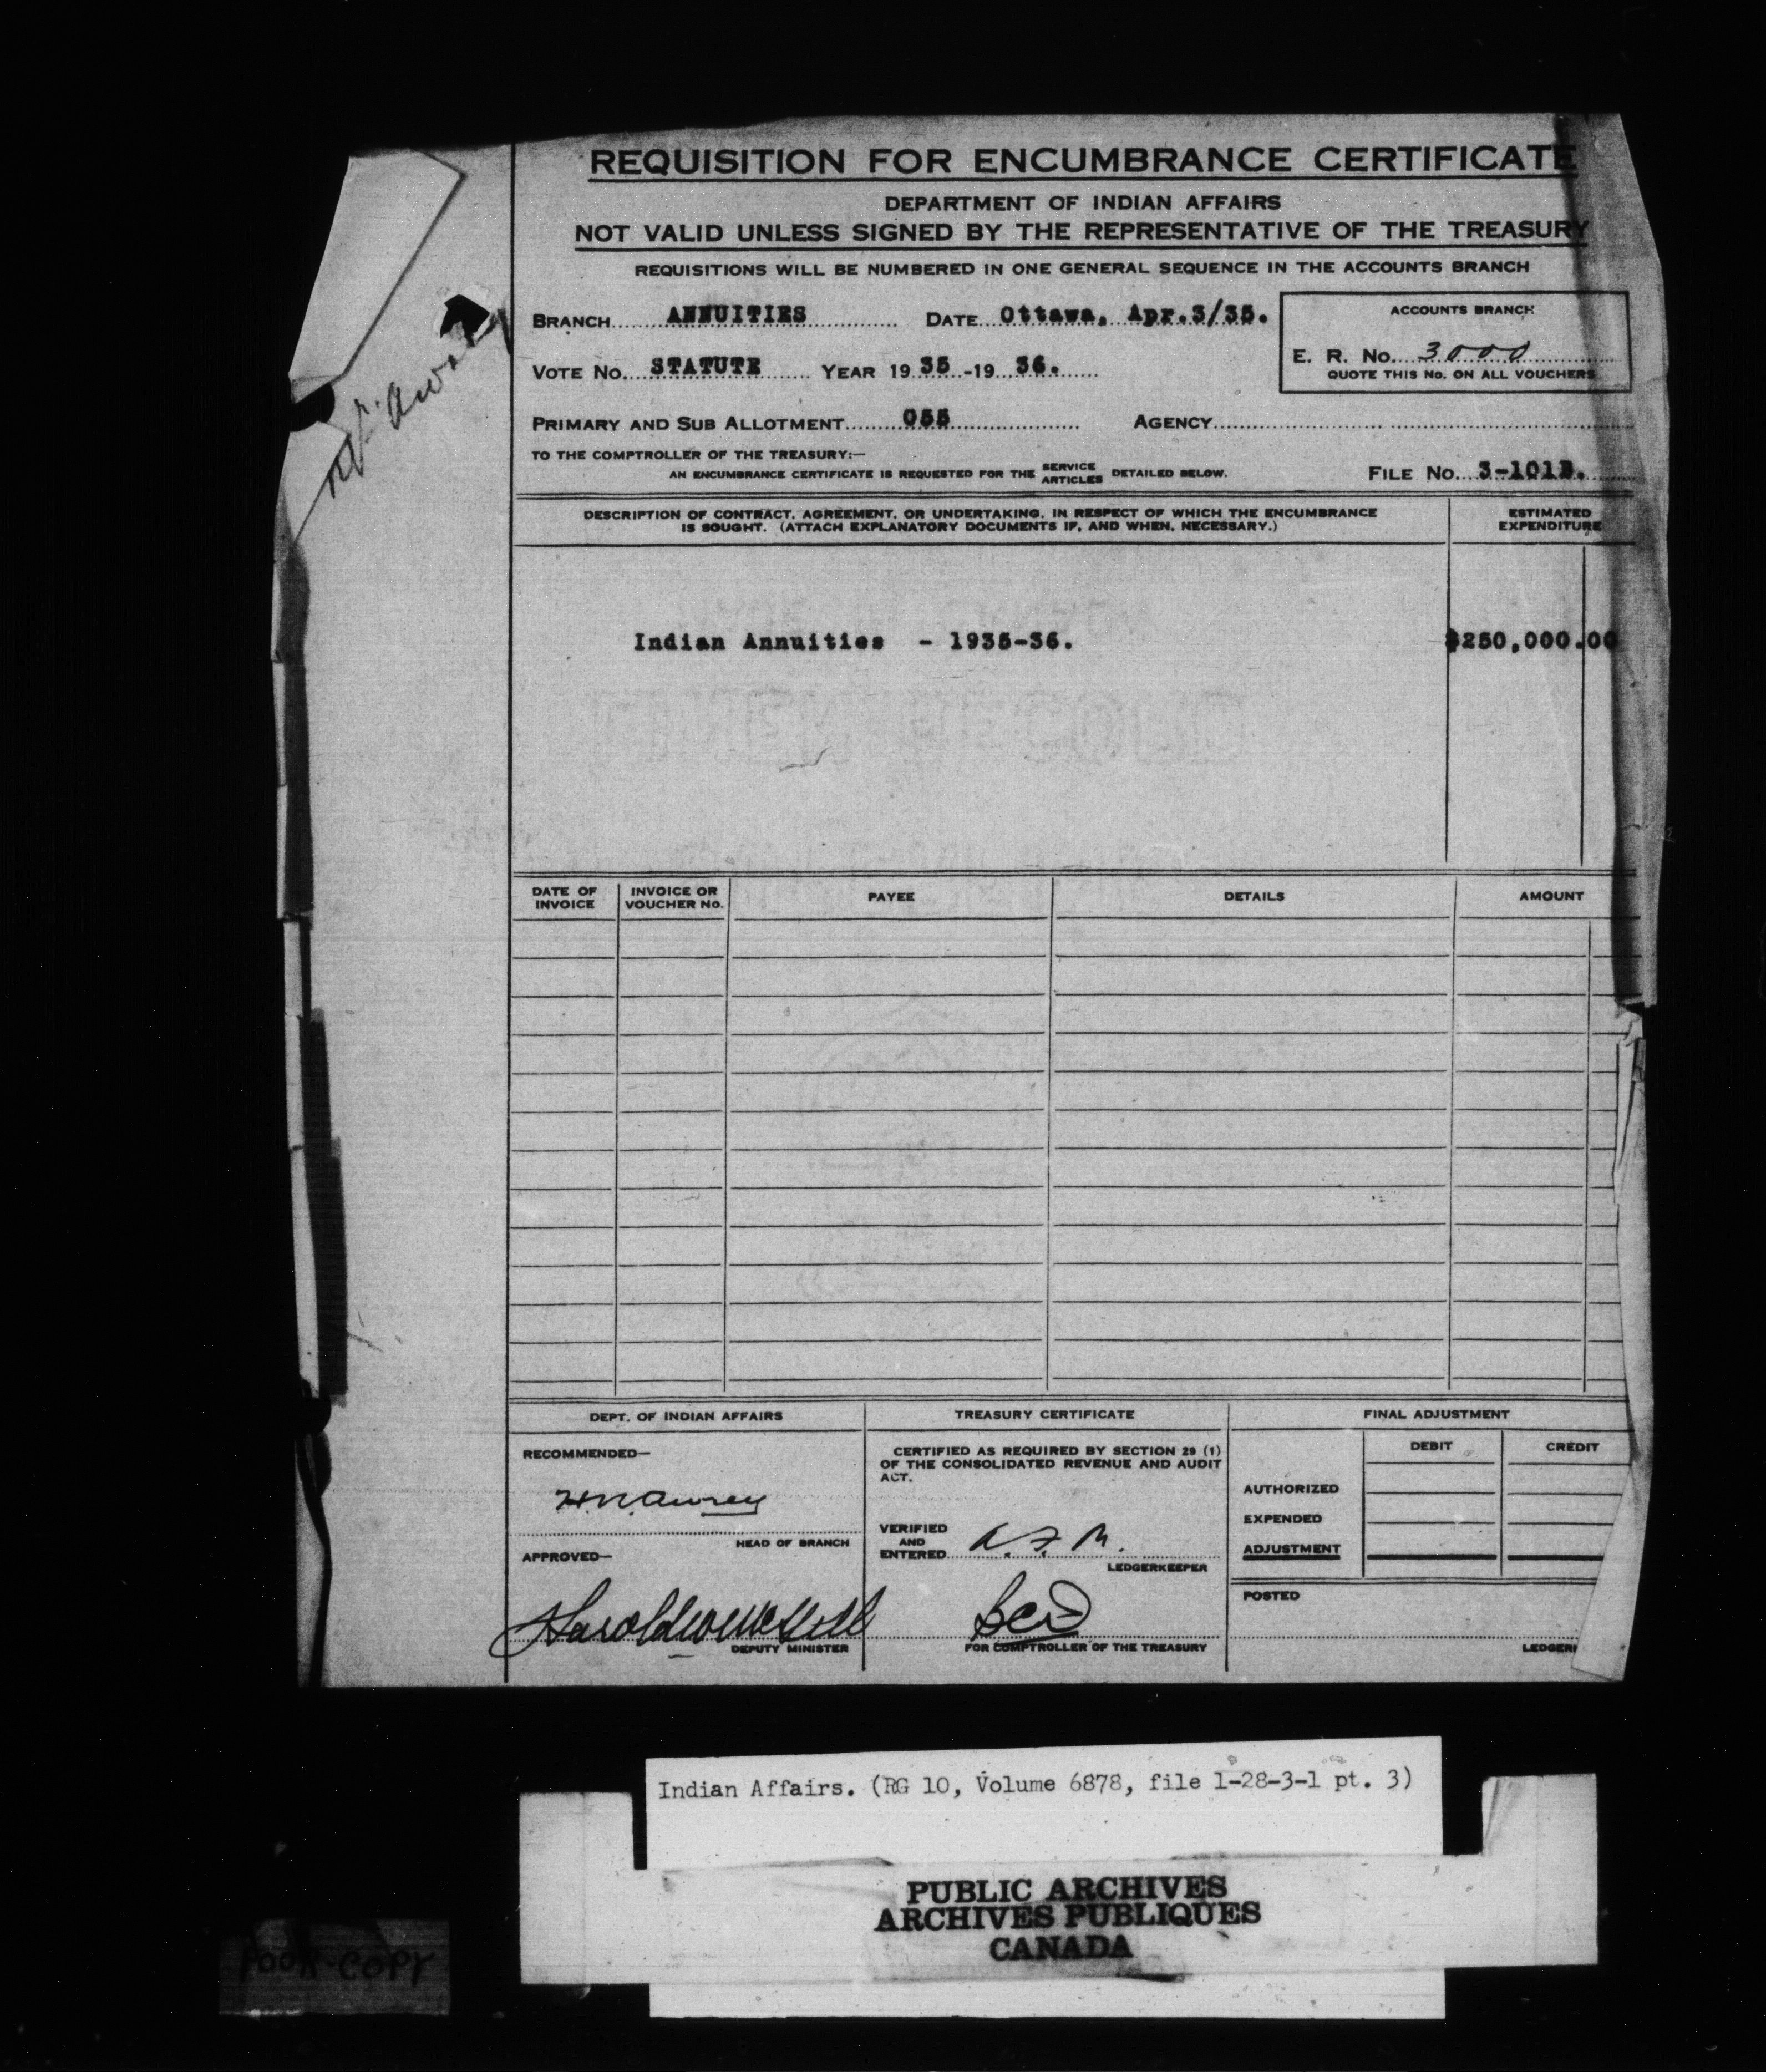 REQUISITION FOR ENCUMBRANCE CERTIFICATE
DEPARTMENT OF INDIAN AFFAIRS
NOT VALID UNLESS SIGNED BY THE REPRESENTATIVE OF THE TREASURY
REQUISITIONS WILL BE NUMBERED IN ONE GENERAL SEQUENCE IN THE ACCOUNTS BRANCH
BRANCH ANNUITIES DATE Ottawa, Apr.3/35.
ACCOUNTS BRANCH
E. R. No. 3000
QUOTE THIS No. ON ALL VOUCHERS
VOTE No. STATUTE YEAR 19 35 -19 36.
PRIMARY AND SUB ALLOTMENT 055 AGENCY
TO THE COMPTROLLER OF THE TREASURY:—
AN ENCUMBRANCE CERTIFICATE IS REQUESTED FOR THE SERVICE ARTICLES DETAILED BELOW.
FILE No. 3-101B.
DESCRIPTION OF CONTRACT, AGREEMENT, OR UNDERTAKING, IN RESPECT OF WHICH THE ENCUMBRANCE
IS SOUGHT. (ATTACH EXPLANATORY DOCUMENTS IF, AND WHEN, NECESSARY.)
ESTIMATED
EXPENDITURE
Indian Annuities - 1935-36. $250,000.00
DATE OF
INVOICE
INVOICE OR
VOUCHER No.
PAYEE
DETAILS
AMOUNT
DEPT. OF INDIAN AFFAIRS
RECOMMENDED—
H.N. Awrey
HEAD OF BRANCH
APPROVED—
Harold W McGill
DEPUTY MINISTER
TREASURY CERTIFICATE
CERTIFIED AS REQUIRED BY SECTION 29 (1)
OF THE CONSOLIDATED REVENUE AND AUDIT
ACT.
VERIFIED
AND
ENTERED
LEDGERKEEPER
FOR COMPTROLLER OF THE TREASURY
FINAL ADJUSTMENT
DEBIT CREDIT
AUTHORIZED
EXPENDED
ADJUSTMENT
POSTED
Indian Affairs. (RG 10, Volume 6878, file 1-28-3-1 pt. 3)
PUBLIC ARCHIVES
ARCHIVES PUBLIQUES
CANADA
POOR COPY